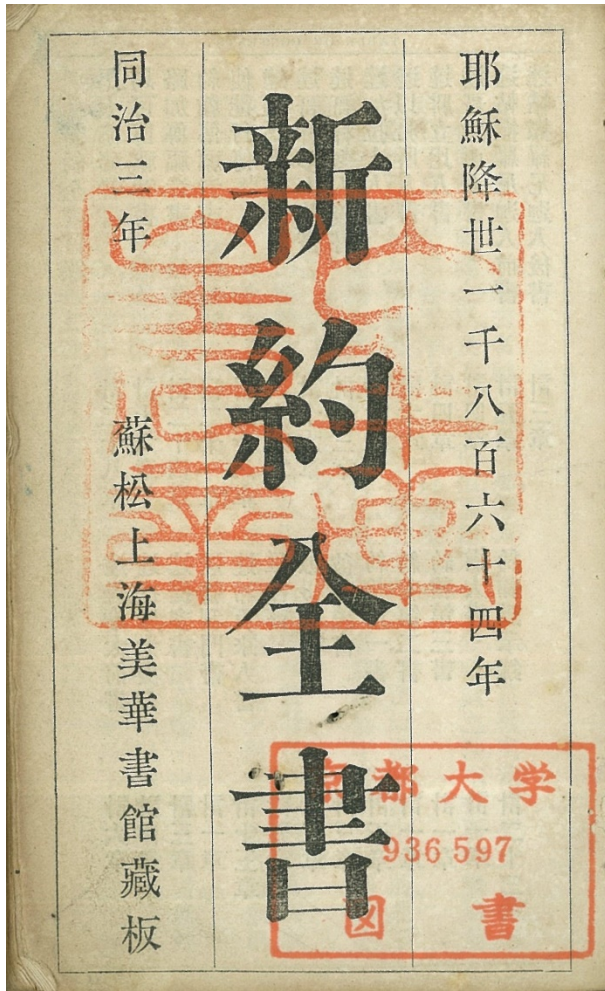 耶穌降世一千八百六十四年
新約全書
同治三年 蘇松上海美華書館藏板
京都大学
936597
図書